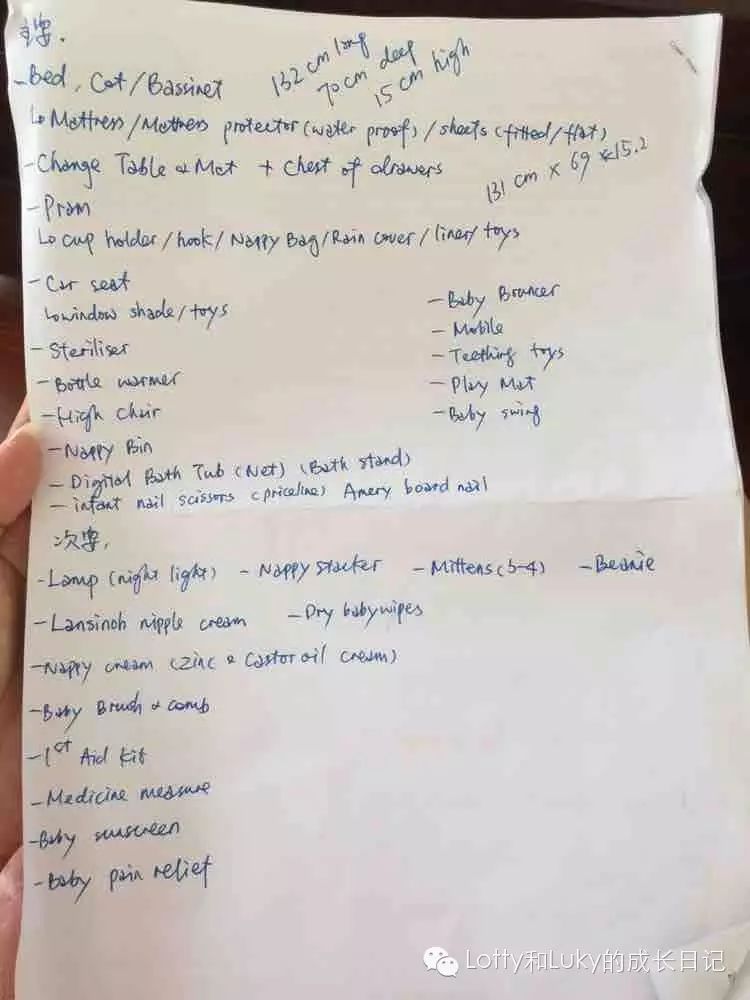 主要.
- Bed, Cot/Bassinet
132 cm long
70 cm deep
15 cm high
↳ Mattress/Mattress protector (water proof)/sheets (fitted/flat)
- Change Table & Mat + Chest of drawers
131 cm × 69 × 15.2
- Pram
↳ cup holder/hook/Nappy Bag/Rain cover/liner/toys
- Car seat
↳ window shade/toys
- Steriliser
- Bottle warmer
- High chair
- Nappy Bin
- Baby Brouncer
- Mobile
- Teething toys
- Play Mat
- Baby swing
- Digital Bath Tub (Net) (Bath stand)
- infant nail scissors (priceline) Amery board nail
次要.
- Lamp (night light) - Nappy stacker - Mittens (3-4) - Beanie
- Lansinoh nipple cream - Dry babywipes
- Nappy cream (Zinc & Castor oil cream)
- Baby Brush & comb
- 1st Aid kit
- Medicine measure
- Baby sunscreen
- Baby pain relief
Lotty和Luky的成长日记